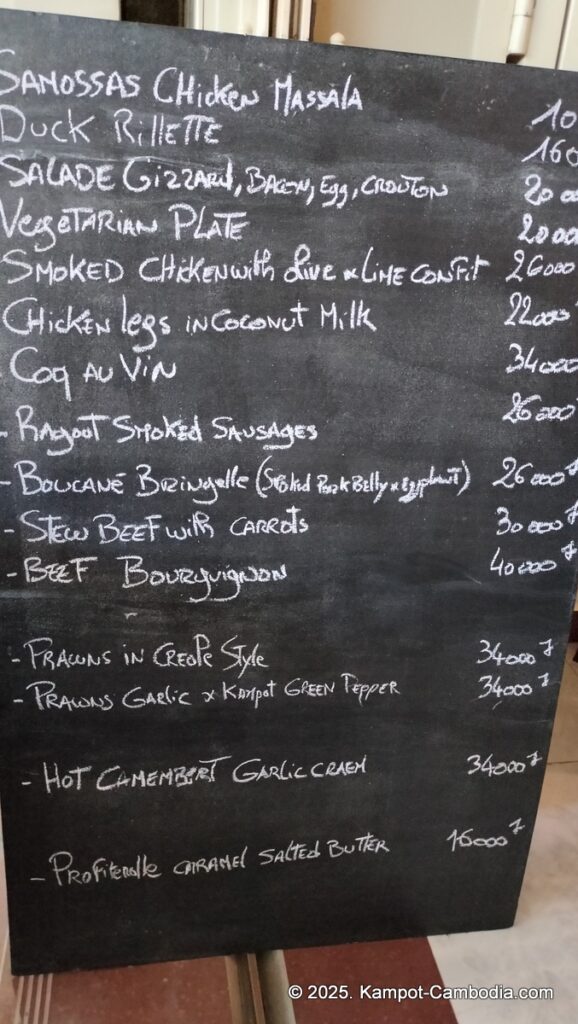 SAMOSSAS CHICKEN MASSALA 10
DUCK RILLETTE 160
SALADE GIZZARD, BACON, Egg, CROUTON 20 00
VegeTARIAN PLATE 2000
SMOKED CHICKEN with Live x LIME CONFIT 26000
CHICKEN legs IN COCONUT MILK 22000
COQ AU VIN 34000
- RAgOOT SMOKED SAUSAGES 26000
- BOUCANÉ BRINGELLE (SMOKED PORK BELLY x EggPLANT) 26000
- STEW BEEF with CARROTS 30000
- BEEF BOURGUIGNON 40000
- PRAWNS IN CREOLE STYLE 34000
- PRAWNS GARLIC x KAMPOT GREEN PEPPER 34000
- HOT CAMEMBERT GARLIC CRAEM 34000
- PROFITEROLLE CARAMEL SALTED BUTTER 16000
© 2025. Kampot-Cambodia.com